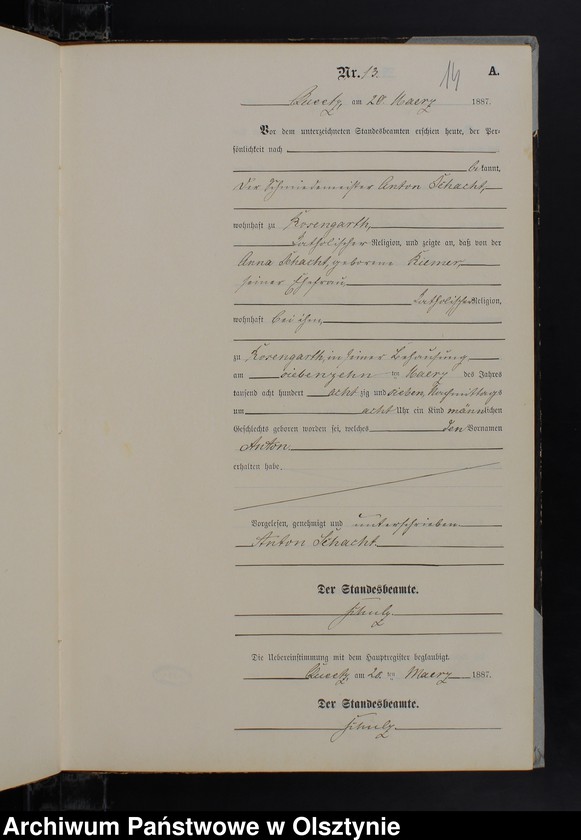 Nr. 13. 14 A.
Queetz, am 20. Maerz 1887.
Vor dem unterzeichneten Standesbeamten erschien heute, der Per-
sönlichkeit nach
bekannt,
der Schmiedemeister Anton Schacht,
wohnhaft zu Rosengarth,
katholischer Religion, und zeigte an, daß von der
Anna Schacht, geborene Riemer,
seiner Ehefrau
katholischer Religion,
wohnhaft bei ihm,
zu Rosengarth, in seiner Behausung
am siebenzehn ten Maerz des Jahres
tausend acht hundert acht zig und sieben, Nachmittags
um acht Uhr ein Kind männlichen
Geschlechts geboren worden sei, welches den Vornamen
Anton
erhalten habe.
Vorgelesen, genehmigt und unterschrieben
Anton Schacht
Der Standesbeamte.
Schulz.
Die Uebereinstimmung mit dem Hauptregister beglaubigt.
Queetz, am 20. ten Maerz 1887.
Der Standesbeamte.
Schulz.
Archiwum Państwowe w Olsztynie